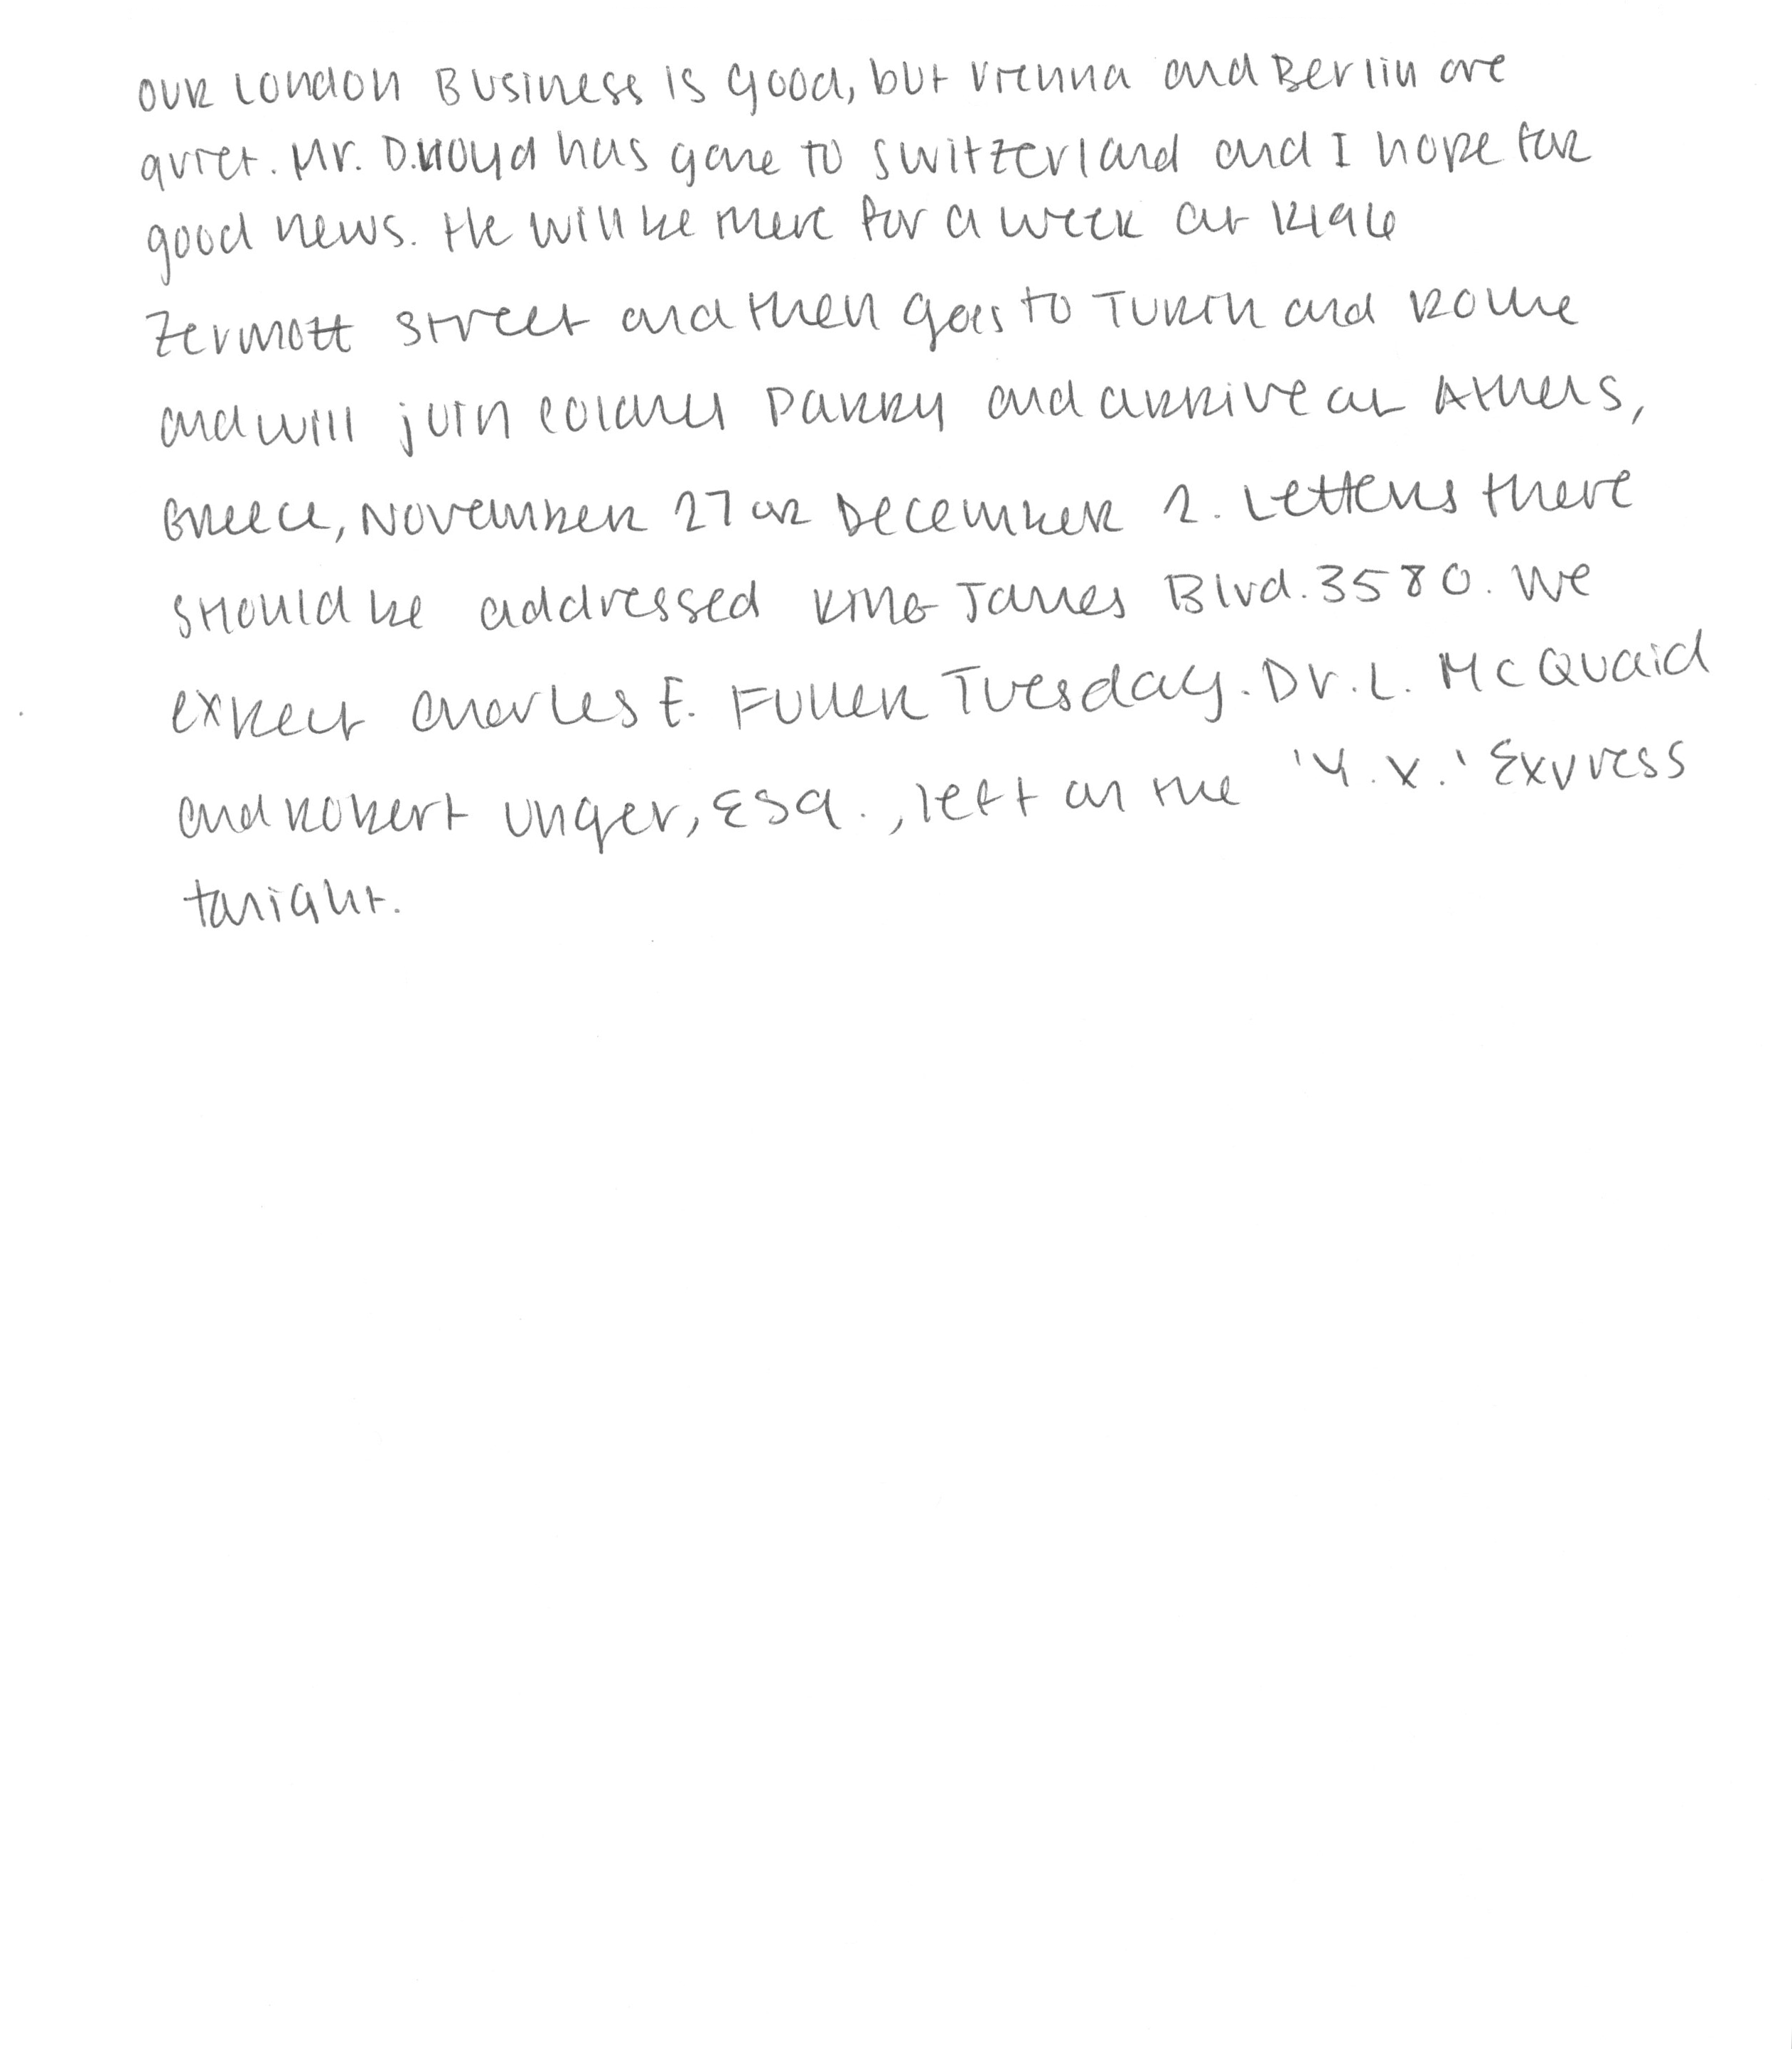 Our London Business is good, but Vienna and Berlin are
quiet. Mr. D. Lloyd has gone to Switzerland and I hope for
good news. He will be there for a week at 1496
Zermott Street and then goes to Turin and Rome
and will join Colonel Parry and arrive at Athens,
Greece, November 27 or December 2. Letters there
should be addressed King James Blvd. 3580. We
expect Charles E. Fuller Tuesday. Dr. L. McQuaid
and Robert Unger, Esq., left on the 'Y.X.' Express
tonight.